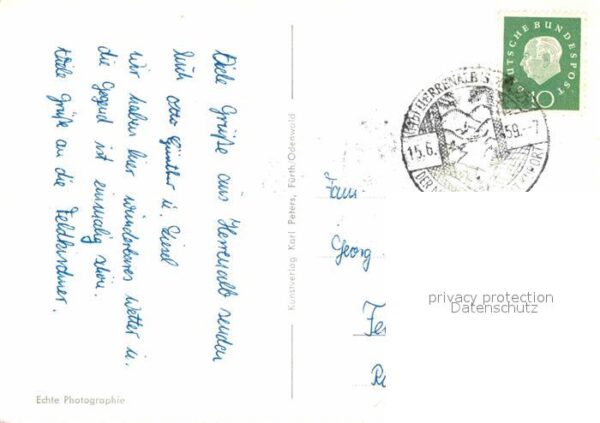 Viele Grüße aus Herrenalb senden
Euch Günther u. Liesel
Wir haben hier wunderbares Wetter u.
die Gegend ist einmalig schön.
Viele Grüße an die Feldkirchner.
Echte Photographie
Kunstverlag Karl Peters, Fürth/Odenwald
DEUTSCHE BUNDESPOST
10
HERRENALB
15.6.
59.--7
Fam.
Georg
Fe
R
privacy protection
Datenschutz